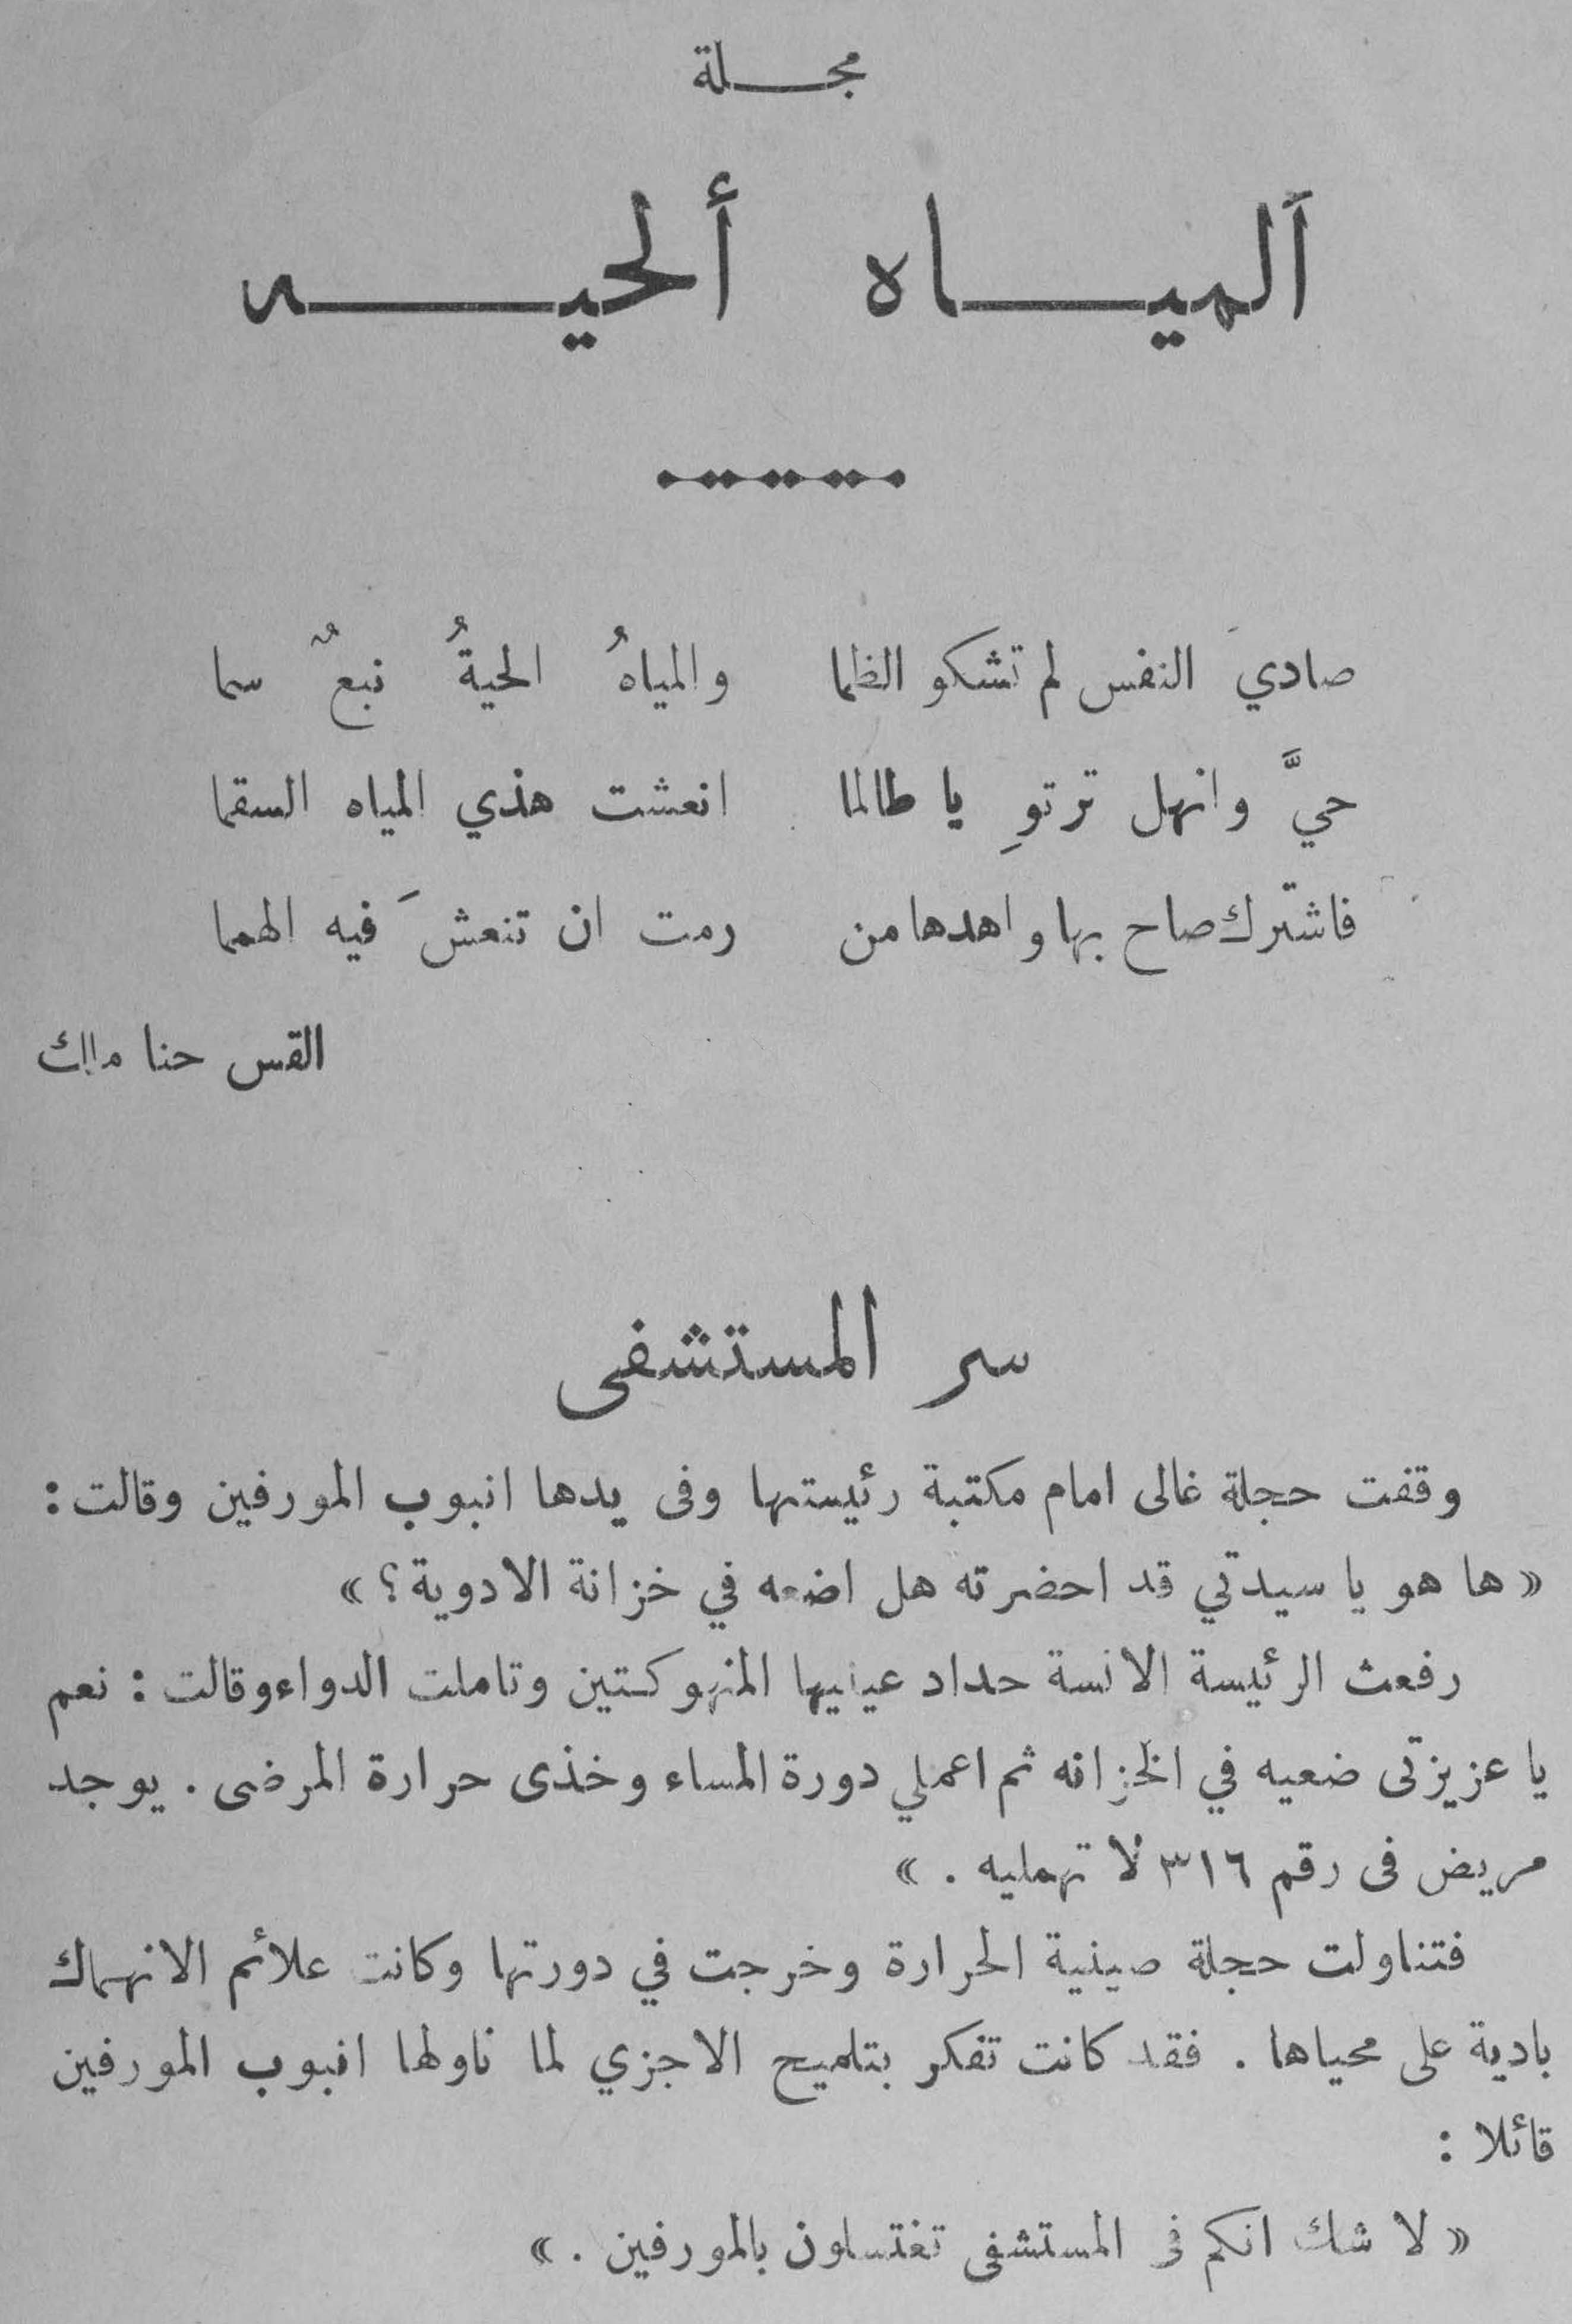 مجلة
ألمياه ألحيه
صاديَ النفس لم تشكو الظما والمياهُ الحيةُ نبعٌ سما
حيَّ وانهل ترتوِ يا طالما انعشت هذي المياه السقما
فاشترك صاح بها واهدها من رمت ان تنعشَ فيه الهمما
القس حنا مالك
سر المستشفى
وقفت حجلة غالى امام مكتبة رئيستها وفى يدها انبوب المورفين وقالت :
« ها هو يا سيدتي قد احضرته هل اضعه في خزانة الادوية ؟ »
رفعت الرئيسة الانسة حداد عينيها المنهوكتين وتاملت الدواء وقالت : نعم
يا عزيزتى ضعيه في الخزانه ثم اعملي دورة المساء وخذى حرارة المرضى . يوجد
مريض فى رقم ٣١٦ لا تهمليه . »
فتناولت حجلة صينية الحرارة وخرجت في دورتها وكانت علائم الانهماك
بادية على محياها . فقد كانت تفكر بتلميح الاجزي لما ناولها انبوب المورفين
قائلا :
« لا شك انكم فى المستشفى تغتسلون بالمورفين . »